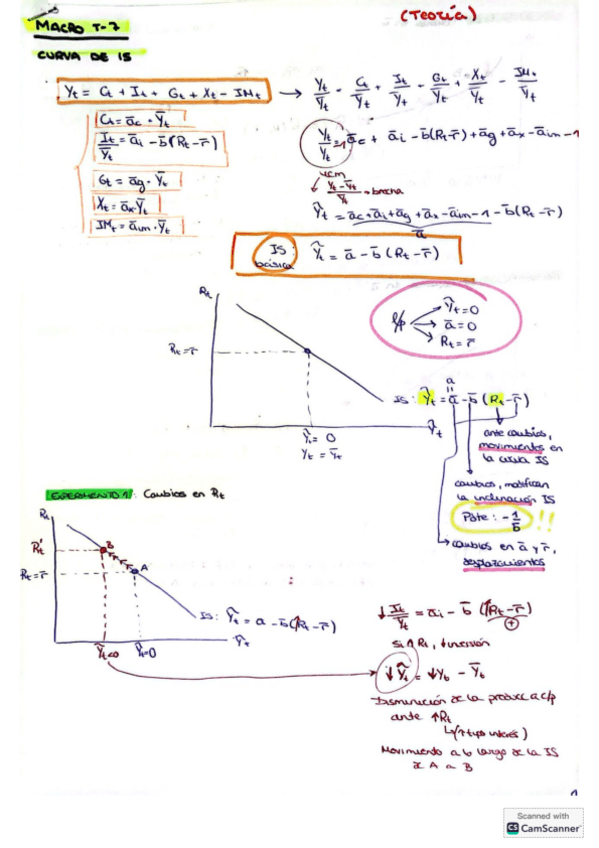 (Teoría)
MACRO T-7
CURVA DE IS
Yt = Ct + It + Gt + Xt - IMt → Yt/Ȳt = Ct/Ȳt + It/Ȳt + Gt/Ȳt + Xt/Ȳt - IMt/Ȳt
Ct = āc · Ȳt
It/Ȳt = āi - b̄(Rt - r̄)
Gt = āg · Ȳt
Xt = āx · Ȳt
IMt = āim · Ȳt
Yt/Ȳt - 1 = āc + āi - b̄(Rt - r̄) + āg + āx - āim - 1
Yt - Ȳt / Ȳt = brecha
Ỹt = āc + āi + āg + āx - āim - 1 - b̄(Rt - r̄)
ā
IS básica: Ỹt = ā - b̄(Rt - r̄)
Rt
l/p
Ỹt = 0
ā = 0
Rt = r̄
Rt = r̄
IS: Ỹt = ā - b̄(Rt - r̄)
Ỹt
Ỹt = 0
Yt = Ȳt
ante cambios,
movimientos en
la curva IS
cambios, modifican
la inclinación IS
Pdte: - 1/b̄ !!
cambios en ā y r̄,
desplazamientos
EXPERIMENTO 1: Cambios en Rt
Rt
R't
B
Rt = r̄
A
IS: Ỹt = ā - b̄(↑Rt - r̄)
Ỹt
Ỹt<0
Ỹt=0
↓ It/Ȳt = āi - b̄(↑Rt - r̄)
(+)
si ↑Rt, ↓ inversión
↓Ỹt = ↓Yt - Ȳt
Disminución de la producc a c/p
ante ↑Rt
(↑ tipo interés)
Movimiento a lo largo de la IS
de A a B
1
Scanned with
CS CamScanner